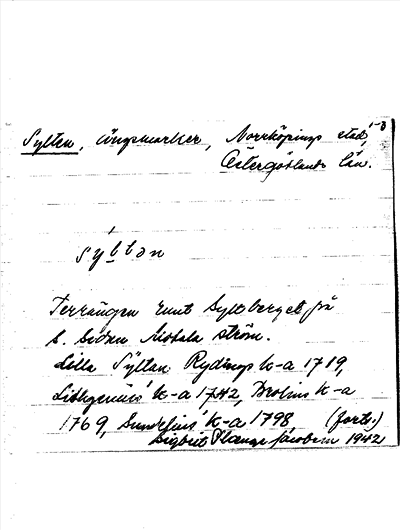 1-3
Syltan, ängsmarker, Norrköpings stad,
Östergötlands län.
sỳltan
Terrängen runt Syltberget på
s. sidan Motala ström.
Lilla Syltan Rydings k-a 1719,
Lithzenius' k-a 1742, Brolins k-a
1769, Sundelius' k-a 1798 (forts.)
Sigbrit Plange Jacobson 1942